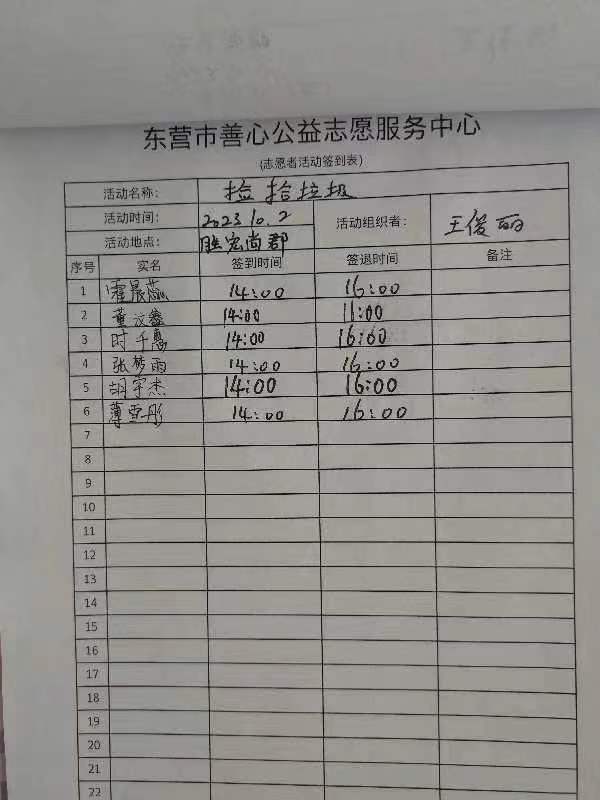 东营市善心公益志愿服务中心
(志愿者活动签到表)
活动名称: 捡拾垃圾
活动时间: 2023.10.2 活动组织者: 王俊丽
活动地点: 胜宏尚郡
序号 实名 签到时间 签退时间 备注
1 霍晨蕊 14:00 16:00
2 董 14:00 16:00
3 时千惠 14:00 16:00
4 张梦雨 14:00 16:00
5 胡宇杰 14:00 16:00
6 薄雪彤 14:00 16:00
7
8
9
10
11
12
13
14
15
16
17
18
19
20
21
22